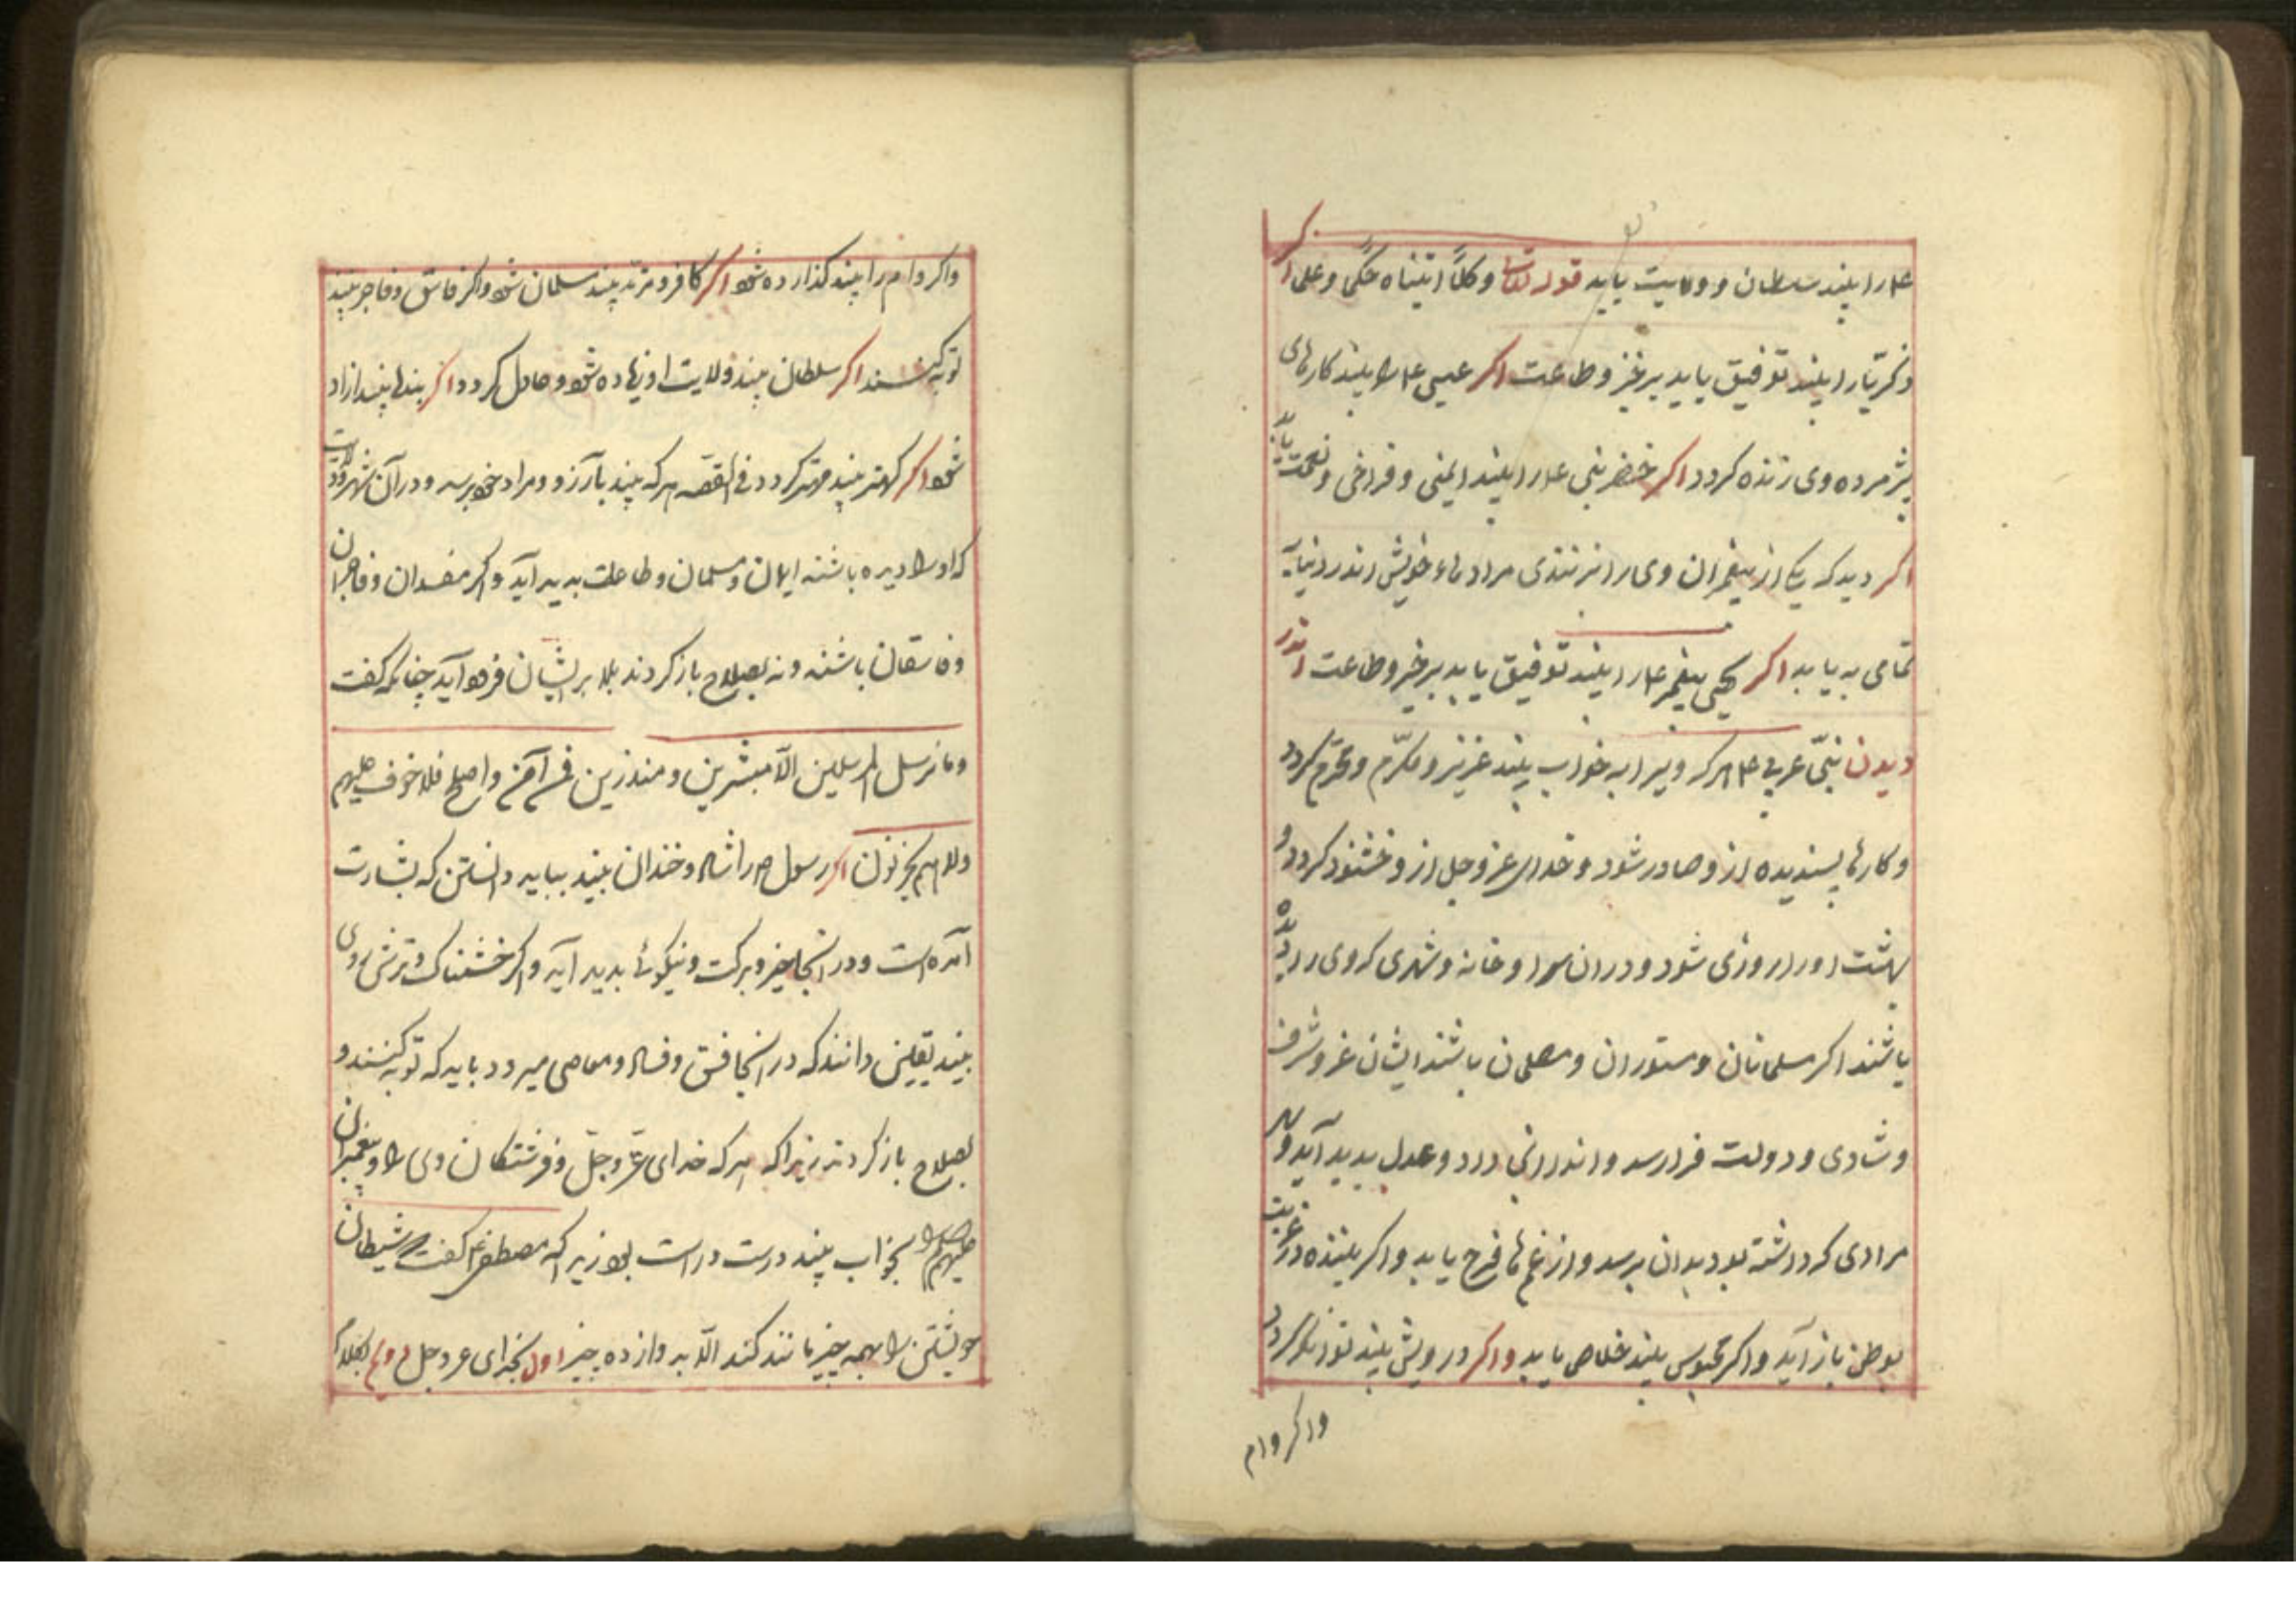 ع‍م را بیند سلطان و ولایت یابد قوله تعالی وکلاً آتیناه حکماً وعلماً اکر
زکریّا را بیند توفیق یابد بر خیر و طاعت اکر عیسی ع‍م را بیند کارهای
پژمرده وی زنده کردد اکر خضر نبی ع‍م را بیند ایمنی و فراخی و نعمت یابد
اکر دید که یکی از پیغمبران وی را مرادهاء خویش اندر دنیا
تمامی به یابد اکر یحیی پیغمبر ع‍م را بیند توفیق یابد بر خیر و طاعت اندر
دیدن نبیّ عربی ع‍م هرکه ویرا به خواب بیند عزیز و مکرّم و محترم کردد
و کارها پسندیده ازو صادر شود و خدای عز و جل ازو خشنود کردد و
بهشت اورا روزی شود و در ان سرا و خانه و شهری که وی را دیده
باشند اکر مسلمانان و مستوران و مصلحان باشند ایشان عز و شرف
و شادی و دولت فرا رسد و عدل بدید آید و هر
مرادی که داشته بود بدان برسد و از غم ها فرح یابد و اکر بیننده در غربت
بوطن باز آید و اکر محبوس بیند خلاص یابد و اکر درویش بیند توانکر کردد
و اکر وام
و اکر وام را بیند کذارده شود اکر کافر و مرتد بیند مسلمان شود و اکر فاسق و فاجر بیند
توبه کنند اکر سلطان بیند ولایت او زیاده شود و عادل کردد و اکر بنده بیند ازاد
شود اکر کهتر بیند مهتر کردد فی القصه هرکه بیند بآرزو و مراد خود برسد و در آن شهر و ولایت
که اورا دیده باشند ایمان و مسلمان و طاعت بدید آید و اکر مفسدان و فاجران
و فاسقان باشند و نه بصلاح باز کردند بلا بر ایشان فرود آید چنانکه کفت
وما نرسل المرسلین الّا مبشرین و منذرین فمن آمن واصلح فلا خوف علیهم
ولا هم یحزنون اکر رسول ص‍م را شاد و خندان بیند بباید دانستن که بشارت
آمده است و در آنجا خیر و برکت و نیکوئی بدید آید و اکر خشمناک و ترش روی
بیند یقین دانند که در آنجا فسق و فساد و معاصی میرود باید که توبه کنند و
بصلاح باز کردند زیرا که هرکه خدای عزّ و جلّ و فرشتکان وی را و پیغمبران
علیهم السلام را بخواب بیند درست و راست بود زیرا که مصطفی ع‍م کفت شیطان
خویشتن را بهمه چیز مانند کند الّا به دوازده چیز اول بخدای عز و جل دوم